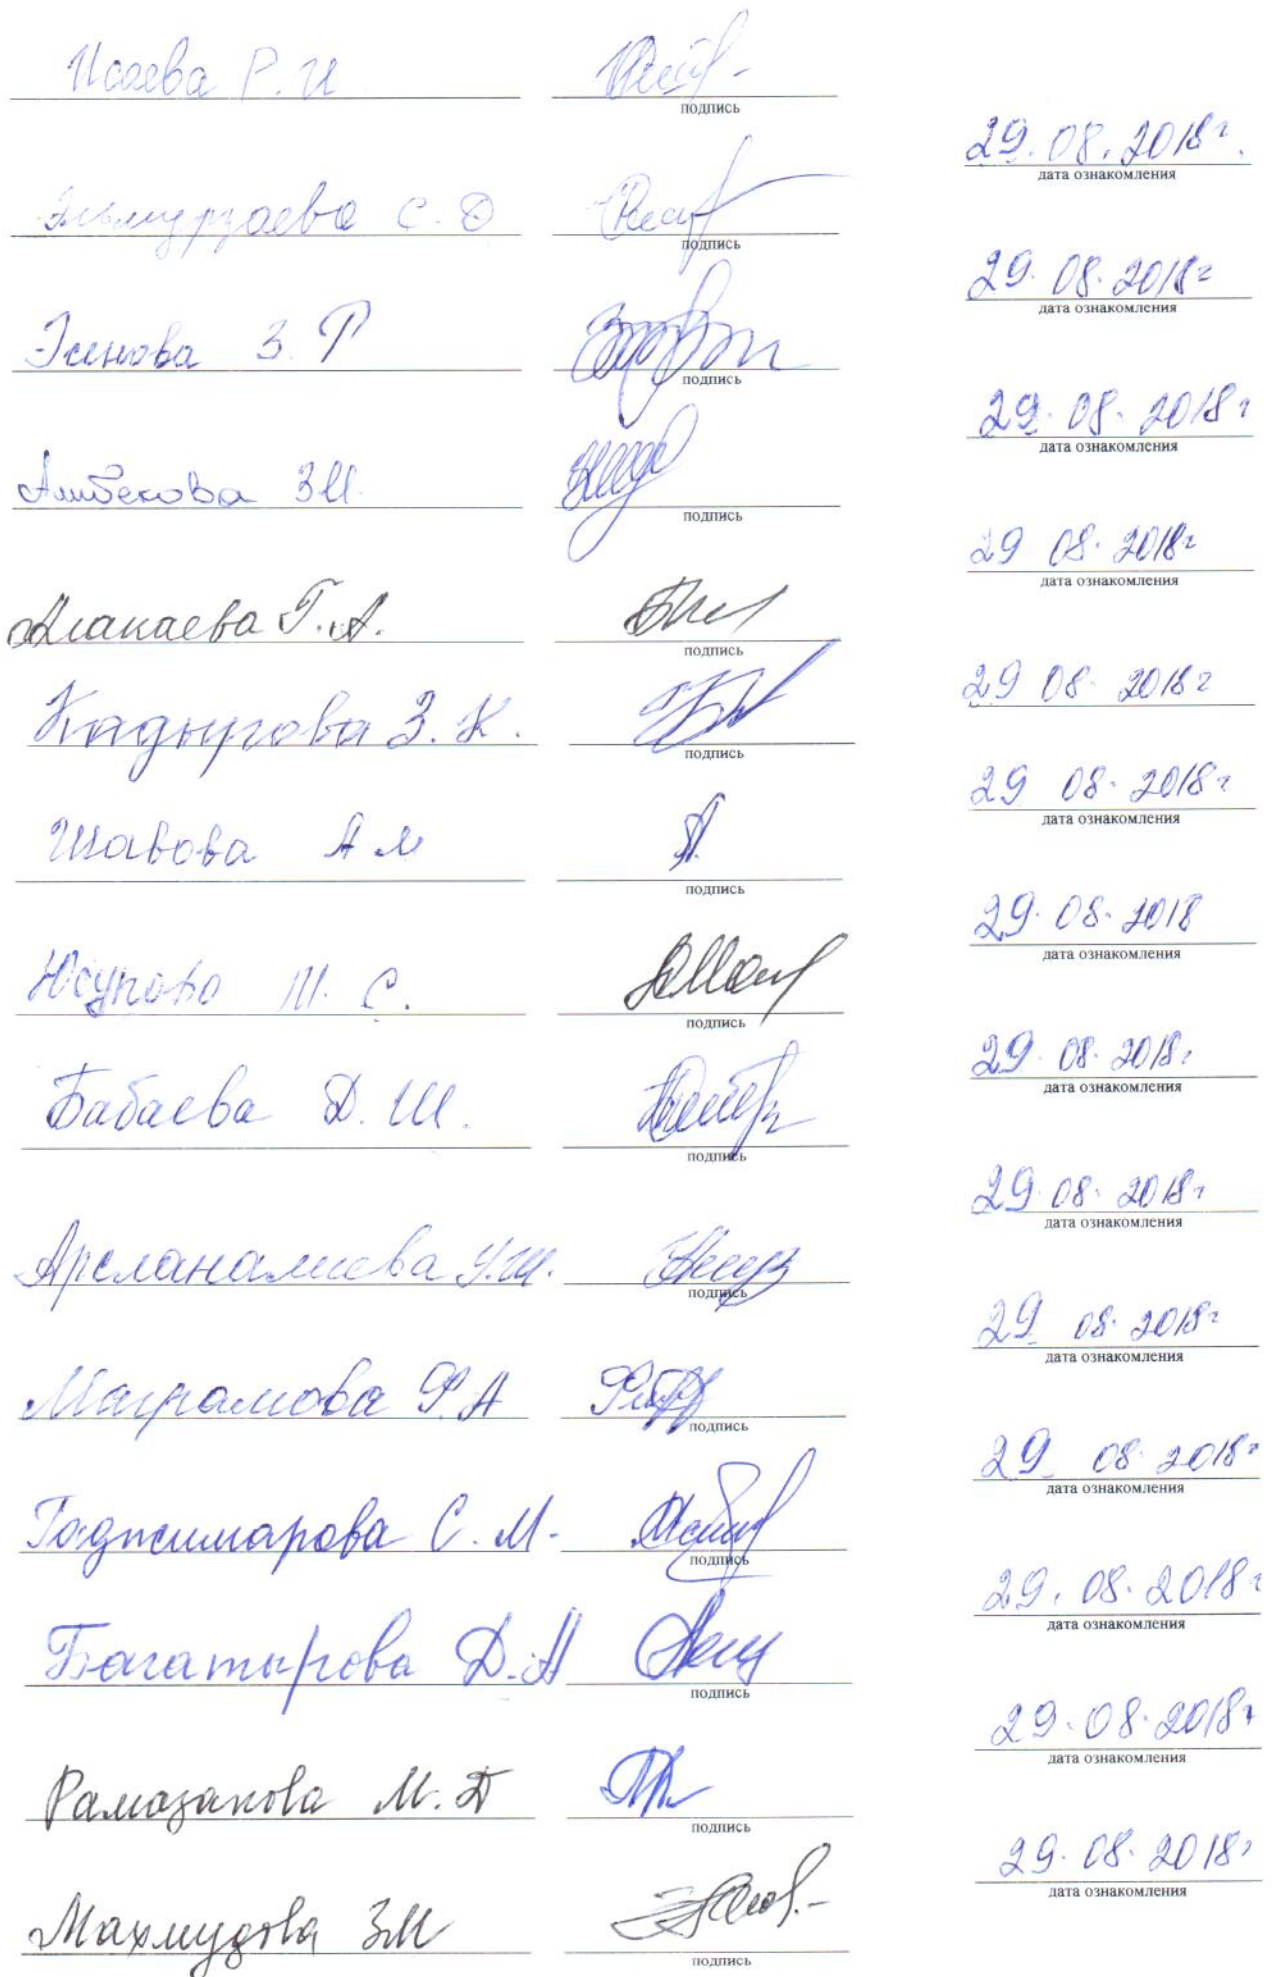 Исаева Р. И
подпись
29. 08. 2018г.
дата ознакомления
Эльмурзаева С. Д
подпись
29. 08. 2018г
дата ознакомления
Эсенова З. Р
подпись
29. 08. 2018г
дата ознакомления
Алибекова З М.
подпись
29 08. 2018г
дата ознакомления
Алакаева Г. А.
подпись
29 08. 2018г
Кадырова З. К.
подпись
29 08. 2018г
дата ознакомления
Шавова А м
подпись
29. 08. 2018
дата ознакомления
Юсупова Ш. С.
подпись
29. 08. 2018г
дата ознакомления
Бабаева Д. Ш.
подпись
29. 08. 2018г
дата ознакомления
Арсланалиева У. Ш.
подпись
29 08. 2018г
дата ознакомления
Маграмова Ф. А
подпись
29 08. 2018г
дата ознакомления
Гаджимарова С. М.
подпись
29. 08. 2018г
дата ознакомления
Багатырова Д. А
подпись
29. 08. 2018г
дата ознакомления
Рамазанова М. Д
подпись
29. 08. 2018г
дата ознакомления
Махмудова З М
подпись